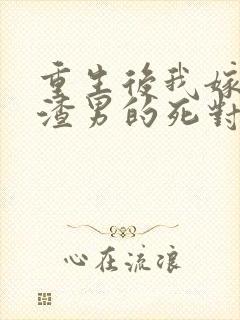 重生後我嫁
渣男的死對
心在流浪